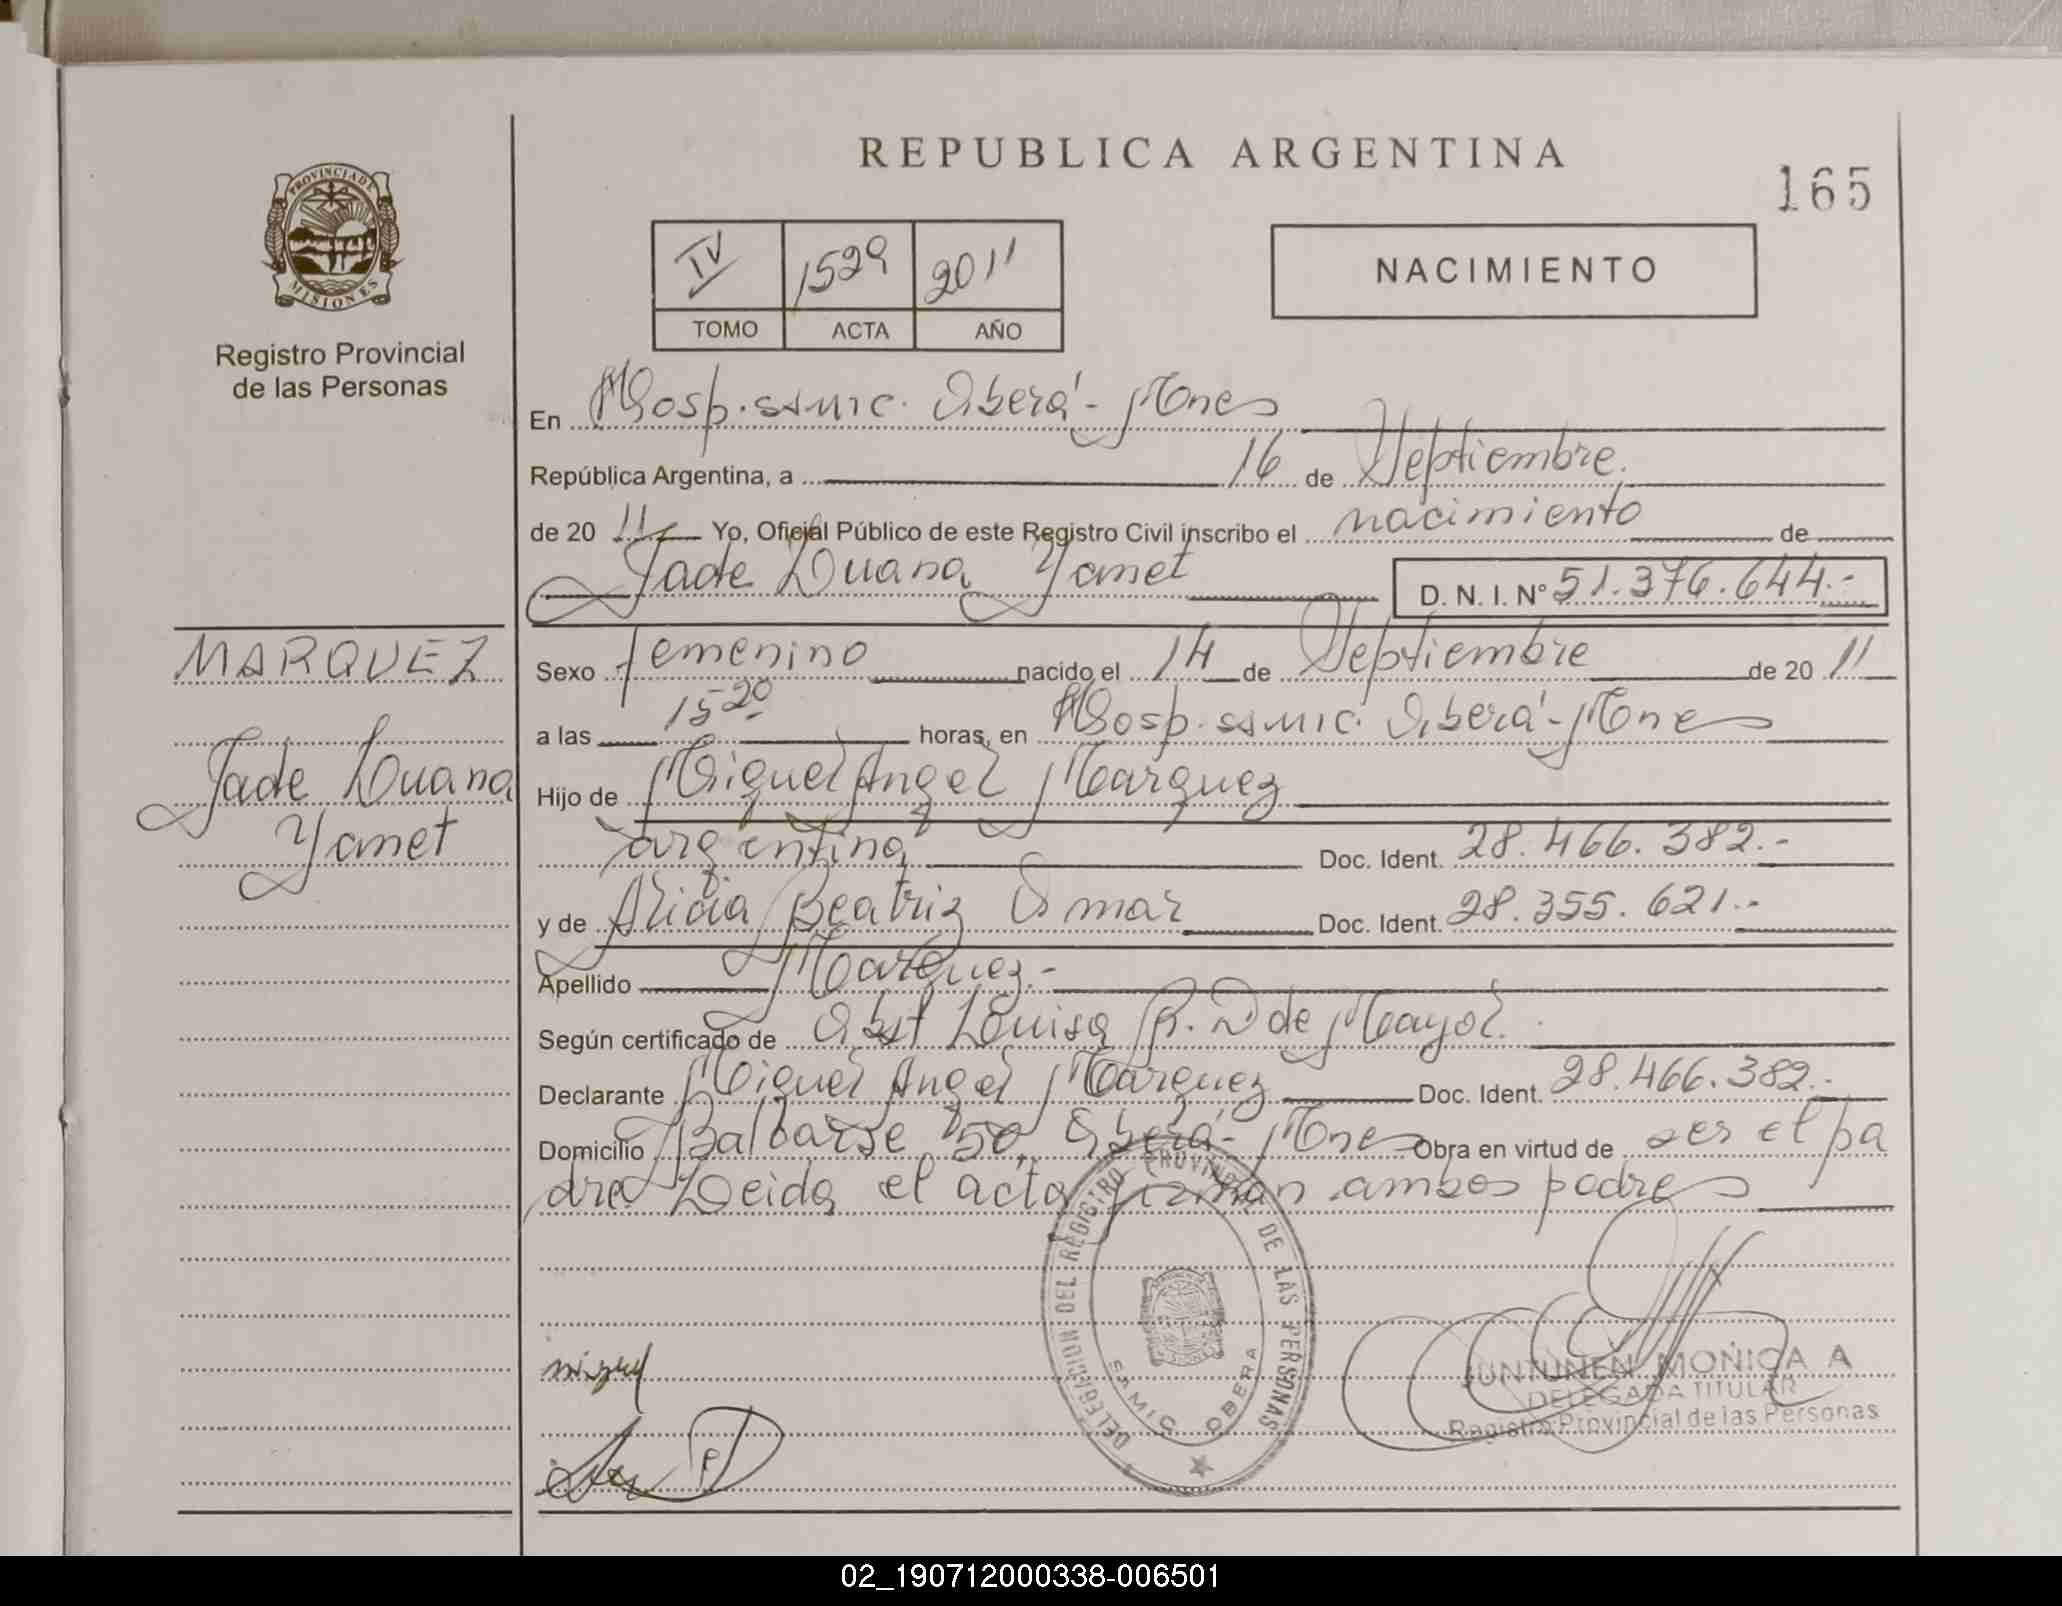 REPUBLICA ARGENTINA
165
PROVINCIA DE MISIONES
Registro Provincial
de las Personas
IV 1529 2011
TOMO ACTA AÑO
NACIMIENTO
En Hosp. samic. Oberá - Mnes
República Argentina, a 16 de Septiembre.
de 20 11 Yo, Oficial Público de este Registro Civil inscribo el nacimiento de
Jade Luana Yamet D. N. I. Nº 51.376.644.-
MARQUEZ
Jade Luana
Yamet
Sexo femenino nacido el 14 de Septiembre de 20 11
a las 15 20 horas, en Hosp. samic. Oberá - Mnes
Hijo de Miguel Angel Marquez
argentina Doc. Ident. 28.466.382.-
y de Alicia Beatriz Omar Doc. Ident. 28.355.621.-
Apellido Marquez.-
Según certificado de Obst Luisa R. D de Mayol.
Declarante Miguel Angel Marquez Doc. Ident. 28.466.382.-
Domicilio Balbarse 50, Oberá - Mnes Obra en virtud de ser el pa
dre. Leida el acta firman ambos padres
DELEGACION DEL REGISTRO PROVINCIAL DE LAS PERSONAS
SAMIC OBERA
miguel
JUNTUNEN MONICA A
DELEGADA TITULAR
Registro Provincial de las Personas
02_190712000338-006501